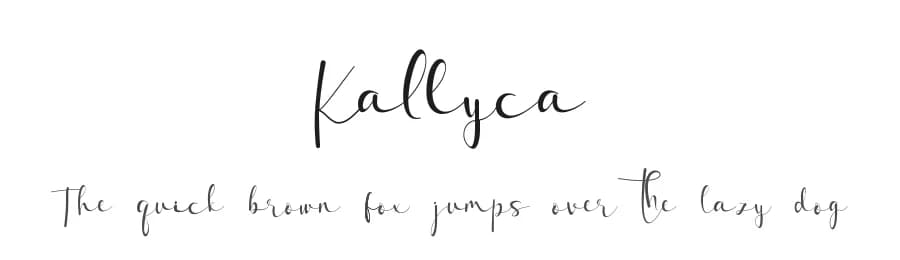 Kallyca
The quick brown fox jumps over the lazy dog